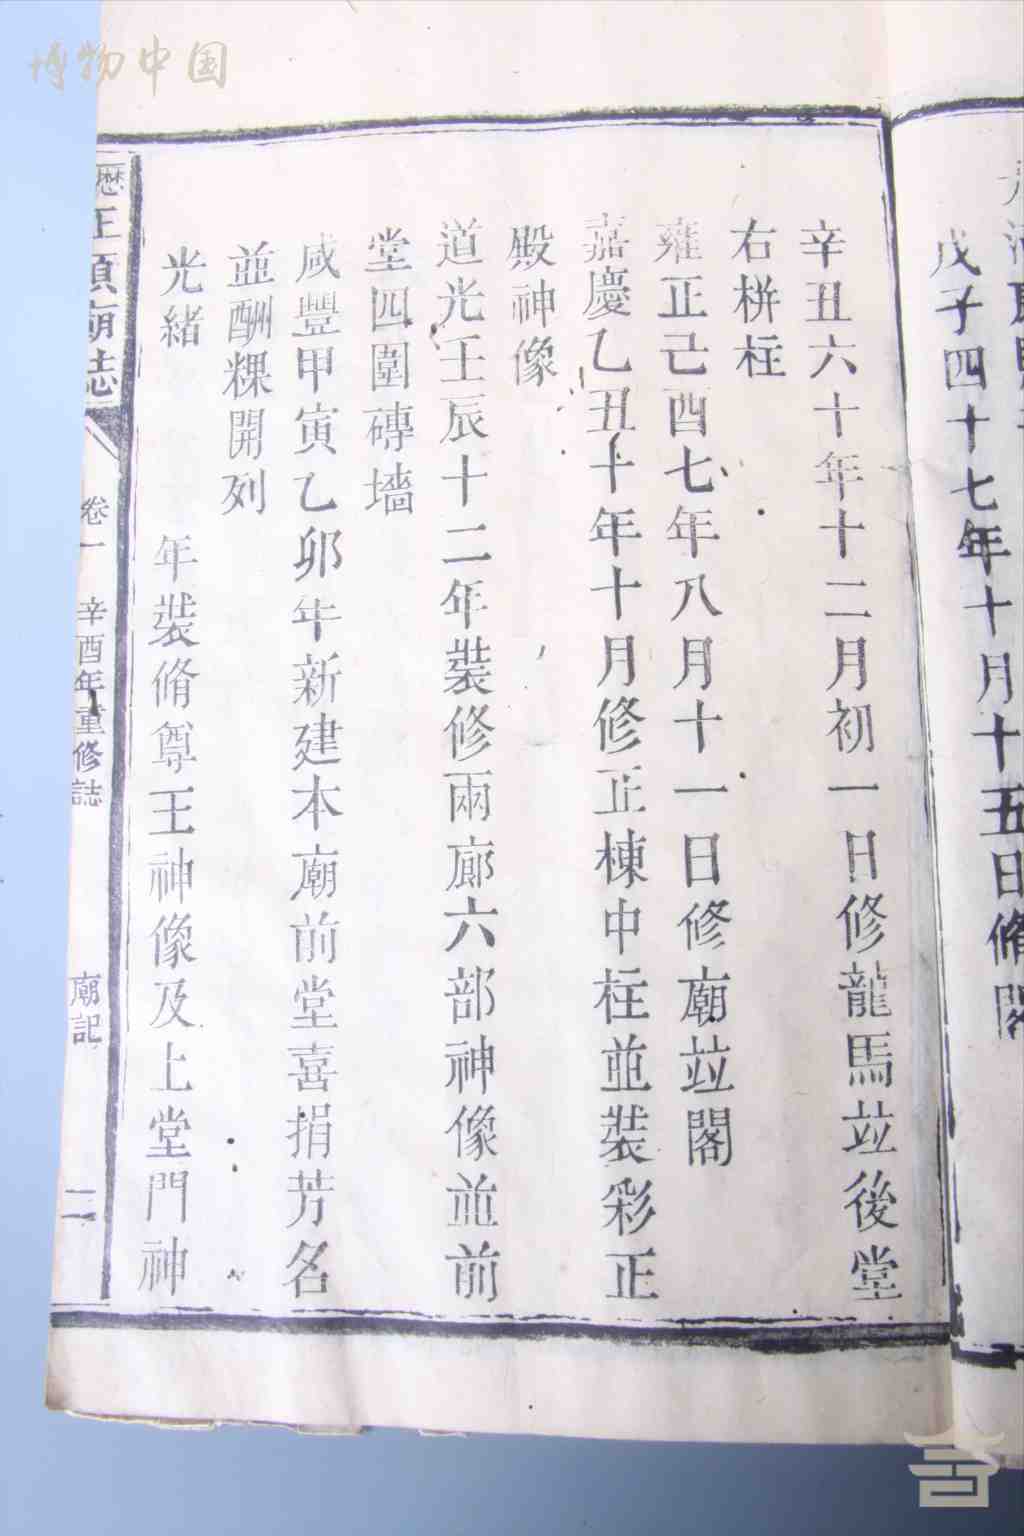 戊子四十七年十月十五日脩閣
辛丑六十年十二月初一日修龍馬竝後堂
右栟柱
雍正己酉七年八月十一日修廟竝閣
嘉慶乙丑十年十月修正棟中柱並裝彩正
殿神像
道光壬辰十二年裝修兩廊六部神像並前
堂四圍磚墻
咸豐甲寅乙卯年新建本廟前堂喜捐芳名
並酬粿開列
光緒 年裝脩尊王神像及上堂門神
王頭廟誌 卷一 辛酉年重修誌 廟記 二
博物中国